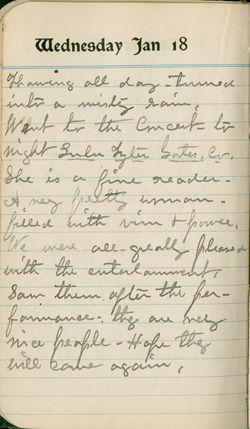 Wednesday Jan 18
Thawing all day - turned
into a misty rain.
Went to the Concert to
night Lulu Tyler Gates, Co.
She is a fine reader -
A very pretty woman -
filled with vim & power.
We were all - greatly pleased
with the entertainment.
Saw them after the per-
formance - they are very
nice people - Hope they
will come again.